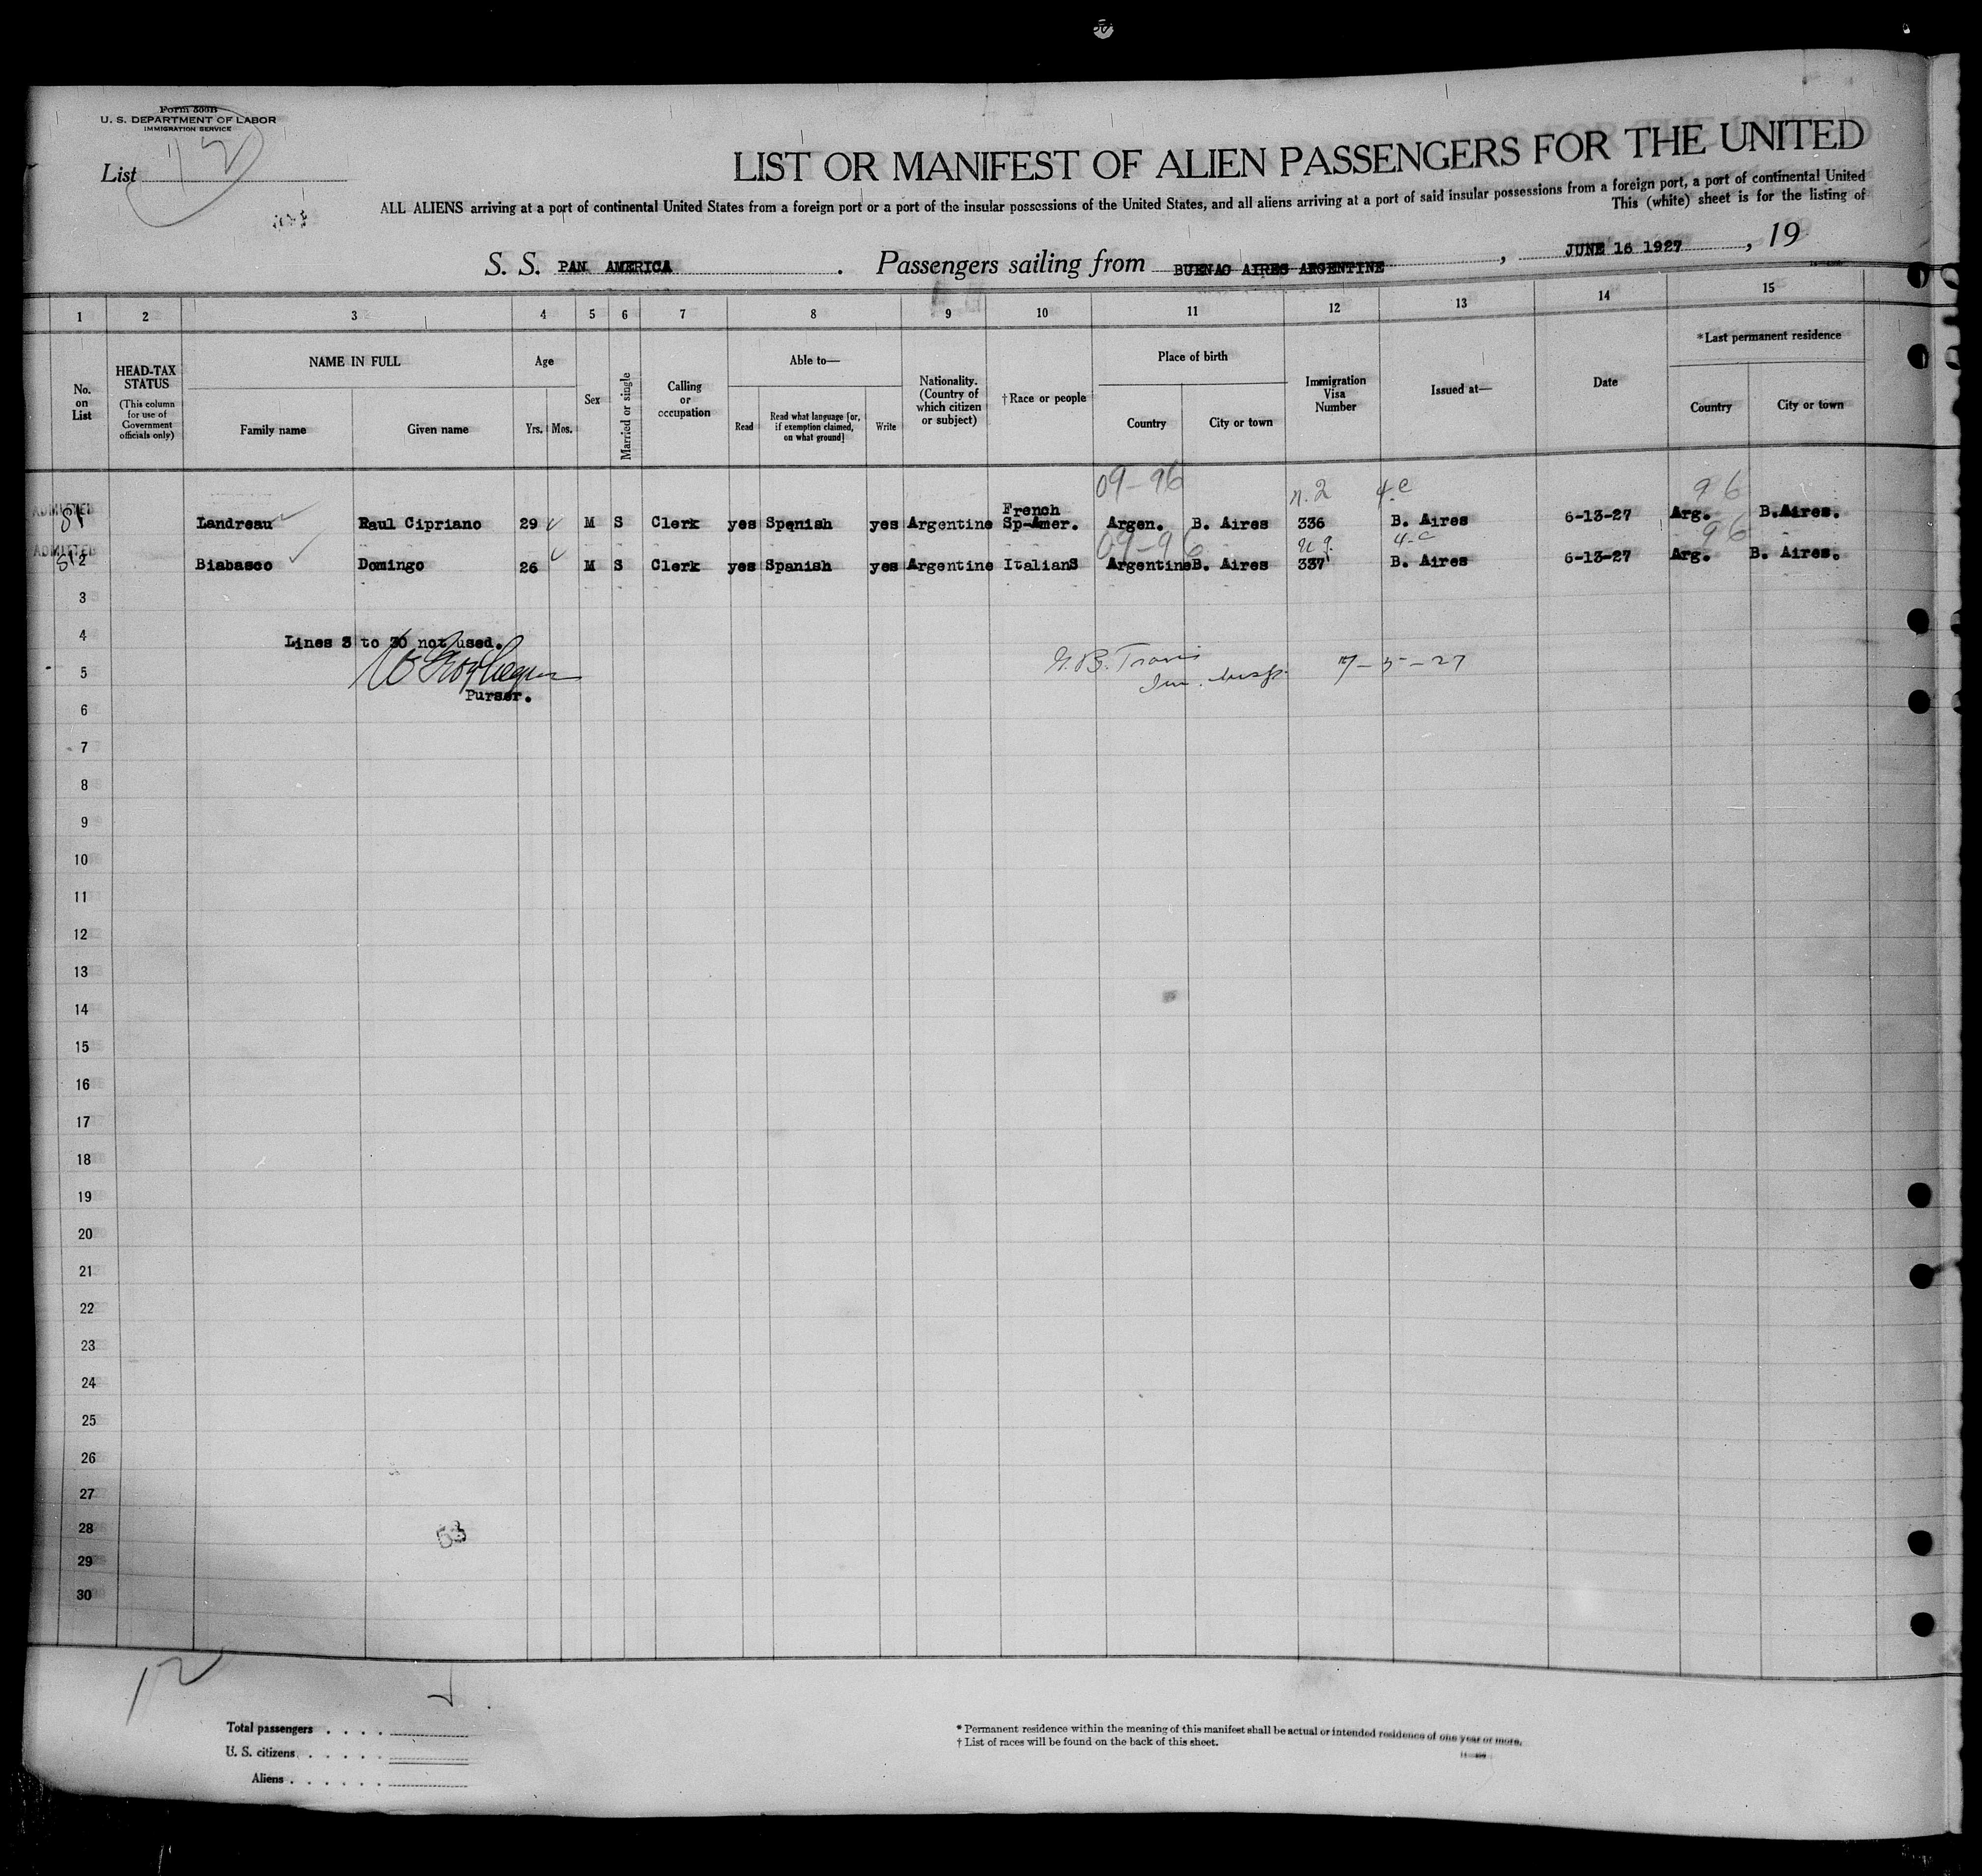 Form 500B
U. S. DEPARTMENT OF LABOR
IMMIGRATION SERVICE
List 12
LIST OR MANIFEST OF ALIEN PASSENGERS FOR THE UNITED
ALL ALIENS arriving at a port of continental United States from a foreign port or a port of the insular possessions of the United States, and all aliens arriving at a port of said insular possessions from a foreign port, a port of continental United
This (white) sheet is for the listing of
S. S. PAN AMERICA . Passengers sailing from BUENAO AIRES ARGENTINE , JUNE 16 1927 , 19
1 2 3 4 5 6 7 8 9 10 11 12 13 14 15
No. on List
HEAD-TAX STATUS (This column for use of Government officials only)
NAME IN FULL
Family name Given name
Age
Yrs. Mos.
Sex
Married or single
Calling or occupation
Able to—
Read Read what language [or, if exemption claimed, on what ground] Write
Nationality. (Country of which citizen or subject)
†Race or people
Place of birth
Country City or town
Immigration Visa Number
Issued at—
Date
*Last permanent residence
Country City or town
09-96 n.2 4.c 96
ADMITTED
French
1 Landreau Raul Cipriano 29 M S Clerk yes Spanish yes Argentine Sp-Amer. Argen. B. Aires 336 B. Aires 6-13-27 Arg. B.Aires.
09-96 4-c 96
ADMITTED
2 Biabasco Domingo 26 M S Clerk yes Spanish yes Argentine ItalianS Argentine B. Aires 337 B. Aires 6-13-27 Arg. B. Aires.
3
4
Lines 3 to 30 not used.
5
Purser.
G. B. Travis
Im. Insp. 7-5-27
6
7
8
9
10
11
12
13
14
15
16
17
18
19
20
21
22
23
24
25
26
27
28
53
29
30
12
Total passengers . . . .
U. S. citizens . . . . . .
Aliens . . . . . .
* Permanent residence within the meaning of this manifest shall be actual or intended residence of one year or more.
† List of races will be found on the back of this sheet.